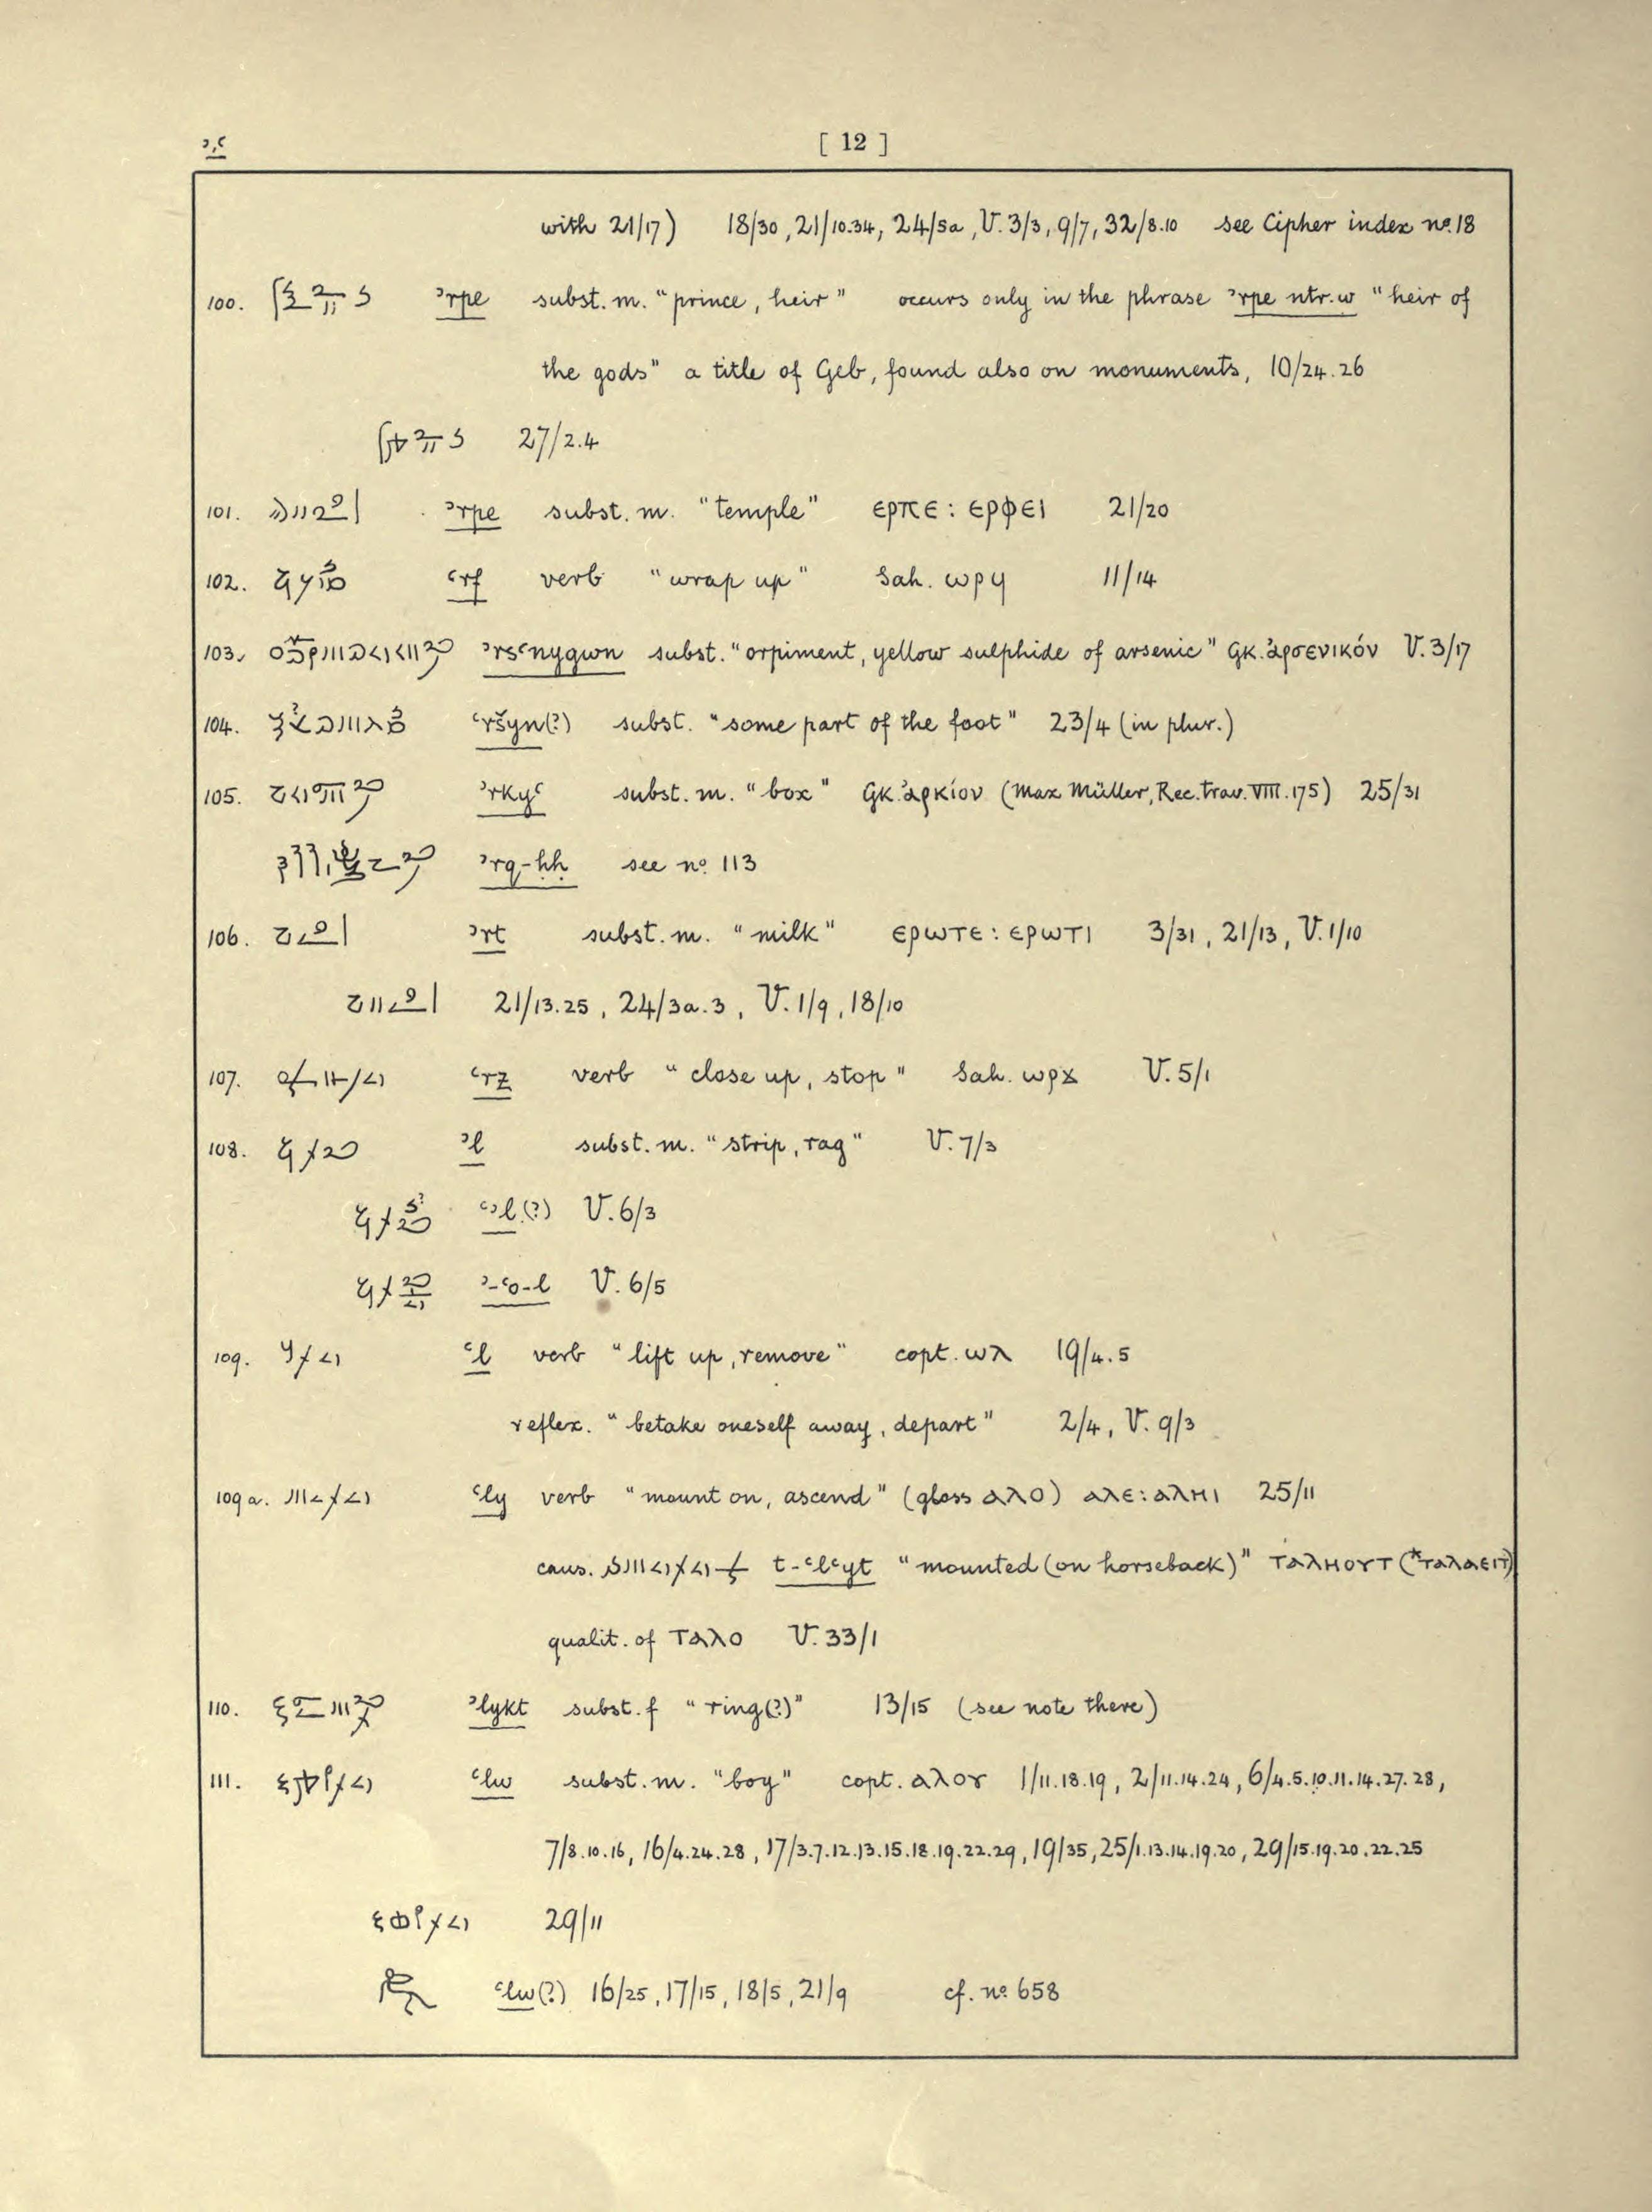 ꜣ,ꜥ [ 12 ]
with 21/17) 18/30, 21/10.34, 24/5a, V. 3/3, 9/7, 32/8.10 see Cipher index nº. 18
100. ꜣrpe subst. m. "prince, heir" occurs only in the phrase ꜣrpe ntr.w "heir of
the gods" a title of Geb, found also on monuments, 10/24.26
27/2.4
101. ꜣrpe subst. m. "temple" ⲉⲣⲡⲉ : ⲉⲣⲫⲉⲓ 21/20
102. ꜥrf verb "wrap up" Sah. ⲱⲣϥ 11/14
103. ꜣrsꜥnygwn subst. "orpiment, yellow sulphide of arsenic" Gk. ἀρσενικόν V. 3/17
104. ꜥršyn(?) subst. "some part of the foot" 23/4 (in plur.)
105. ꜣrkyꜥ subst. m. "box" Gk. ἀρκίον (Max Müller, Rec. trav. VIII. 175) 25/31
ꜣrq-ḥḥ see nº. 113
106. ꜣrt subst. m. "milk" ⲉⲣⲱⲧⲉ : ⲉⲣⲱϯ 3/31, 21/13, V. 1/10
21/13.25, 24/3a.3, V. 1/9, 18/10
107. ꜥrz verb "close up, stop" Sah. ⲱⲣϫ V. 5/1
108. ꜣl subst. m. "strip, rag" V. 7/3
ꜥꜣl(?) V. 6/3
ꜣ-ꜥo-l V. 6/5
109. ꜥl verb "lift up, remove" copt. ⲱⲗ 19/4.5
reflex. "betake oneself away, depart" 2/4, V. 9/3
109a. ꜥly verb "mount on, ascend" (gloss ⲁⲗⲟ) ⲁⲗⲉ : ⲁⲗⲏⲓ 25/11
caus. t-ꜥlꜥyt "mounted (on horseback)" ⲧⲁⲗⲏⲟⲩⲧ (*ⲧⲁⲗⲁⲉⲓⲧ)
qualit. of ⲧⲁⲗⲟ V. 33/1
110. ꜣlykt subst. f "ring(?)" 13/15 (see note there)
111. ꜥlw subst. m. "boy" copt. ⲁⲗⲟⲩ 1/11.18.19, 2/11.14.24, 6/4.5.10.11.14.27.28,
7/8.10.16, 16/4.24.28, 17/3.7.12.13.15.18.19.22.29, 19/35, 25/1.13.14.19.20, 29/15.19.20.22.25
29/11
ꜥlw(?) 16/25, 17/15, 18/5, 21/9 cf. nº. 658